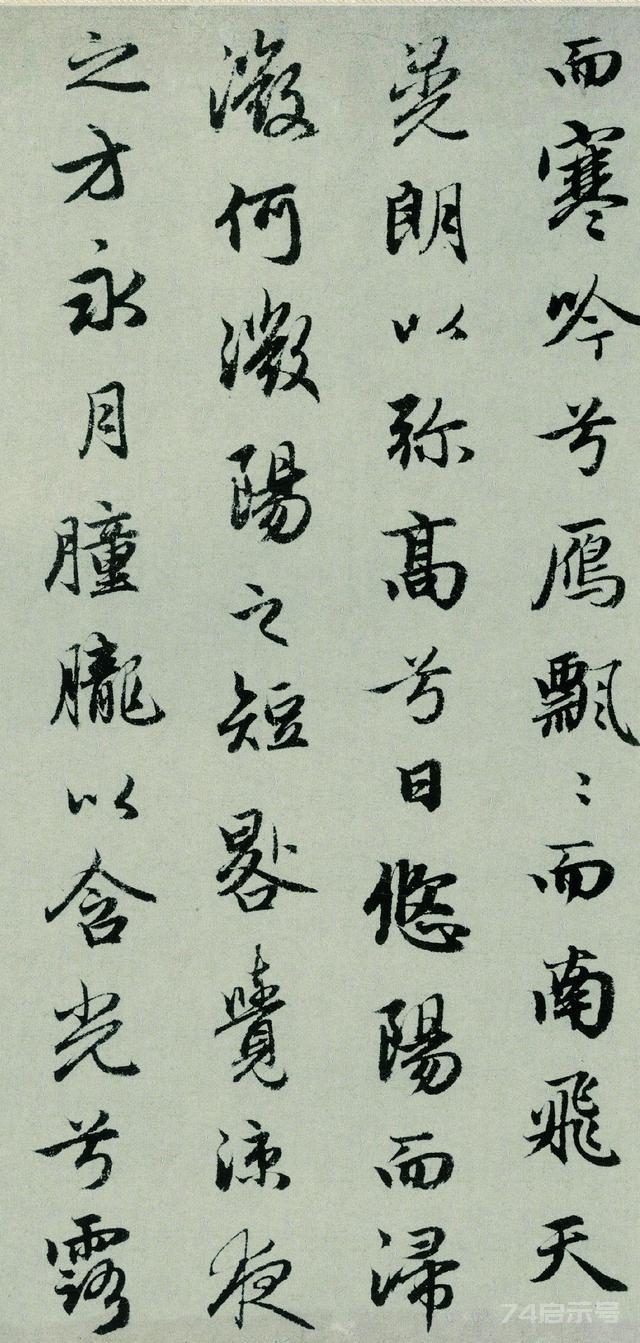 而寒吟兮鴈飄〻而南飛天
晃朗以弥高兮日悠陽而浸
微何微陽之短晷覺涼夜
之方永月朣朧以含光兮露
74启示号